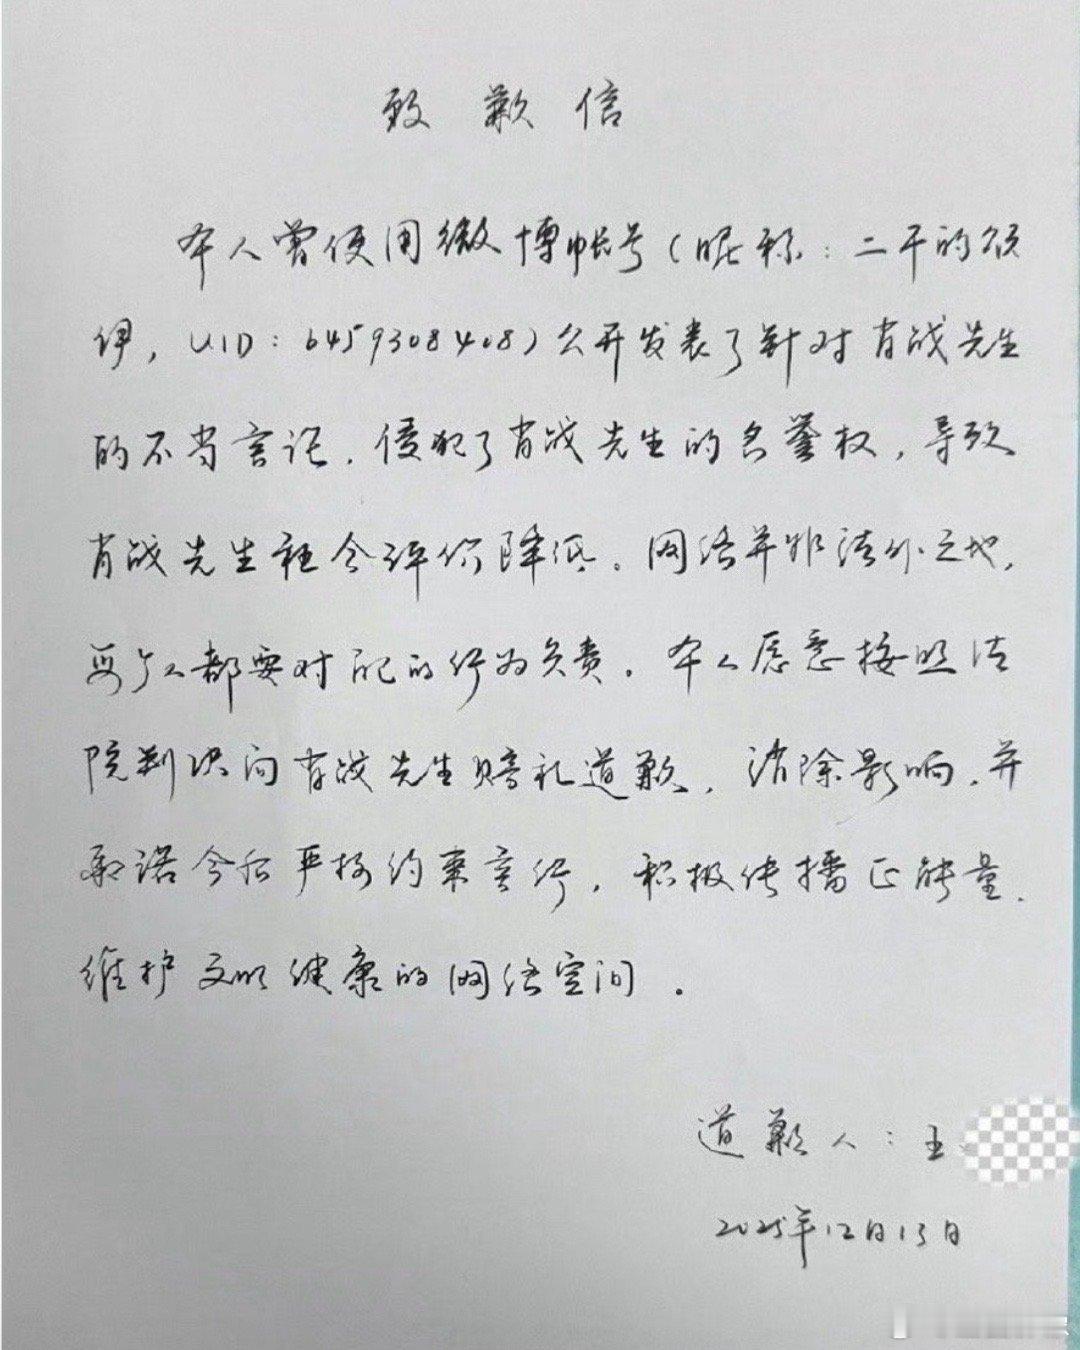 致歉信
本人曾使用微博帐号（昵称：二干的颀
伊，UID：6459308408）公开发表了针对肖战先生
的不当言论，侵犯了肖战先生的名誉权，导致
肖战先生社会评价降低。网络并非法外之地，
每个人都要对自己的行为负责。本人愿意按照法
院判决向肖战先生赔礼道歉，消除影响，并
承诺今后严格约束言行，积极传播正能量，
维护文明健康的网络空间。
道歉人：王
2025年12月13日